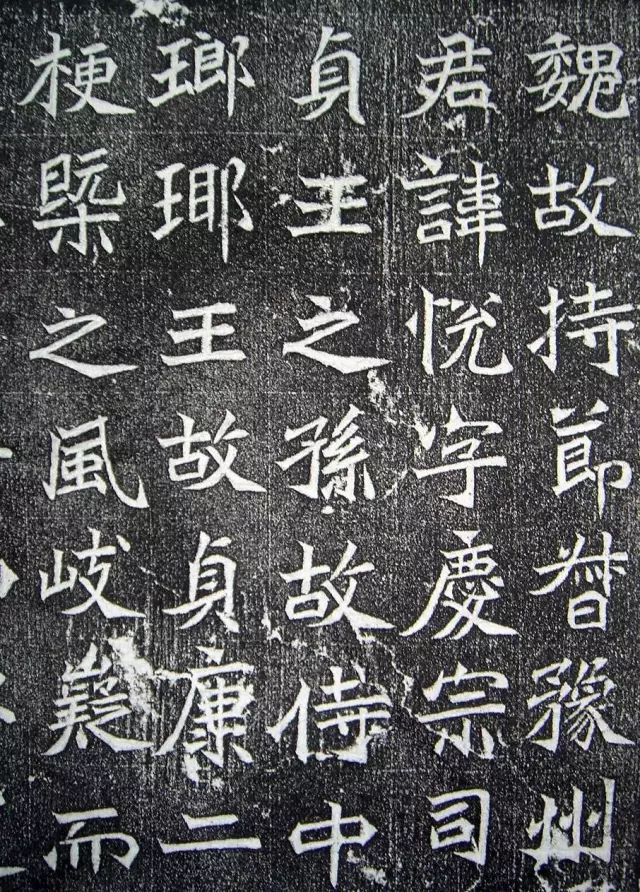 魏故持節督豫州
君諱悅字慶宗司
貞王之孫故侍中
瑯瑘王故貞康二
梗槩之風岐嶷而